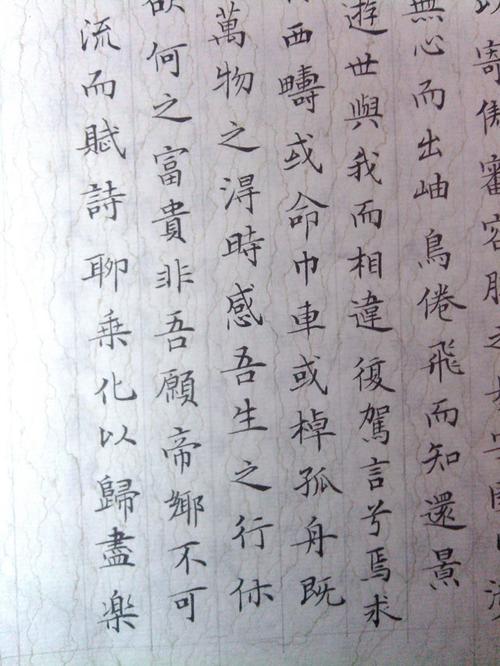 寄傲審容膝之
無心而出岫鳥倦飛而知還景
遊世與我而相違復駕言兮焉求
西疇或命巾車或棹孤舟既
萬物之淂時感吾生之行休
欲何之富貴非吾願帝鄉不可
流而賦詩聊乗化以歸盡楽